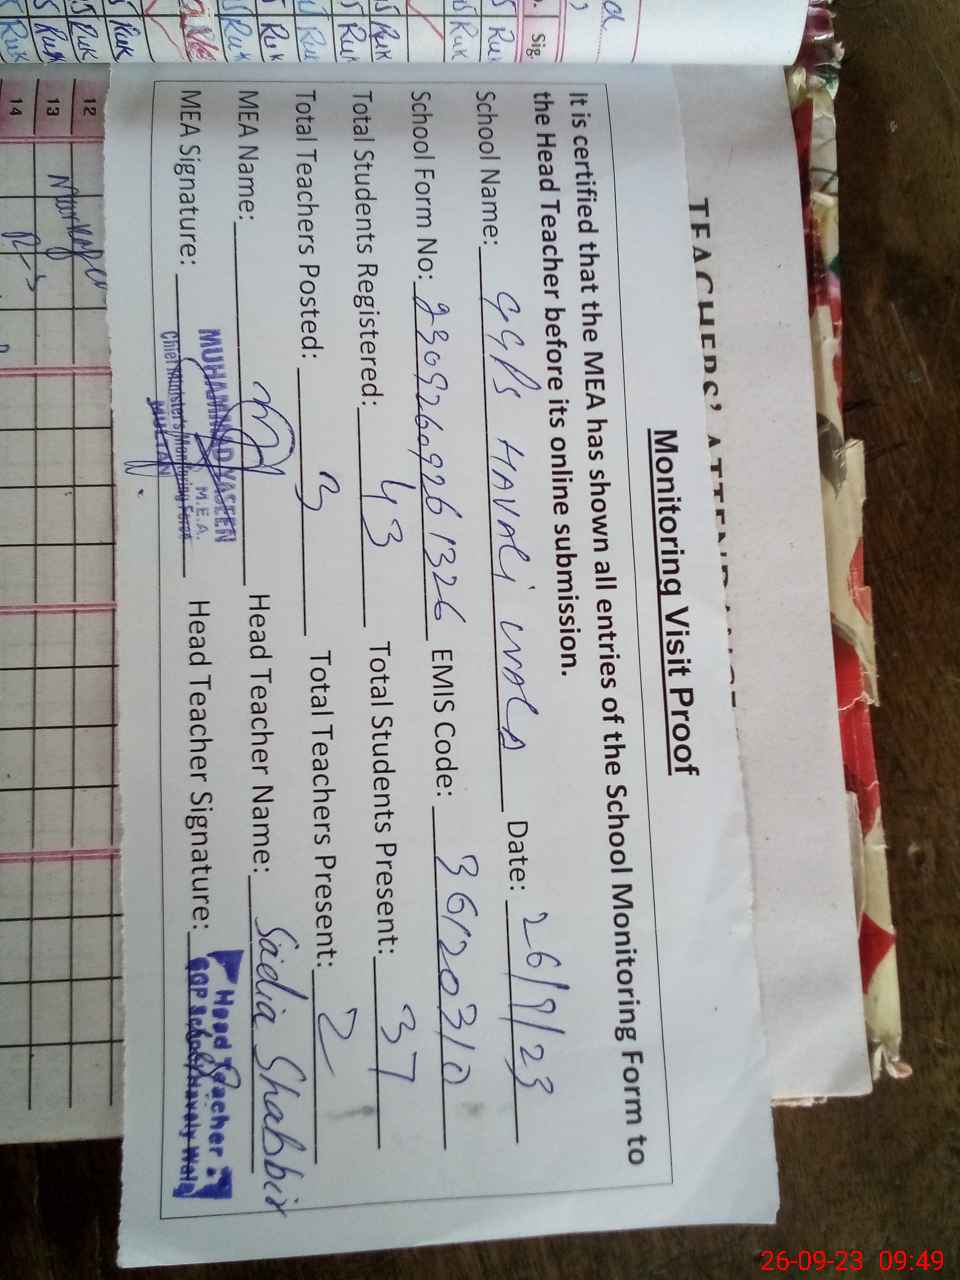 Monitoring Visit Proof
It is certified that the MEA has shown all entries of the School Monitoring Form to
the Head Teacher before its online submission.
School Name: GGPS HAVALi WALA Date: 26/9/23
School Form No: 23092609261326 EMIS Code: 36120310
Total Students Registered: 43 Total Students Present: 37
Total Teachers Posted: 3 Total Teachers Present: 2
MEA Name: Head Teacher Name: Sadia Shabbir
MUHAMMAD YASEEN
M.E.A.
Chief Minister's Monitoring Force
MULTAN
MEA Signature: Head Teacher Signature:
Head Teacher
GGP School Havaly Wala
Sig
12
13
14
26-09-23 09:49